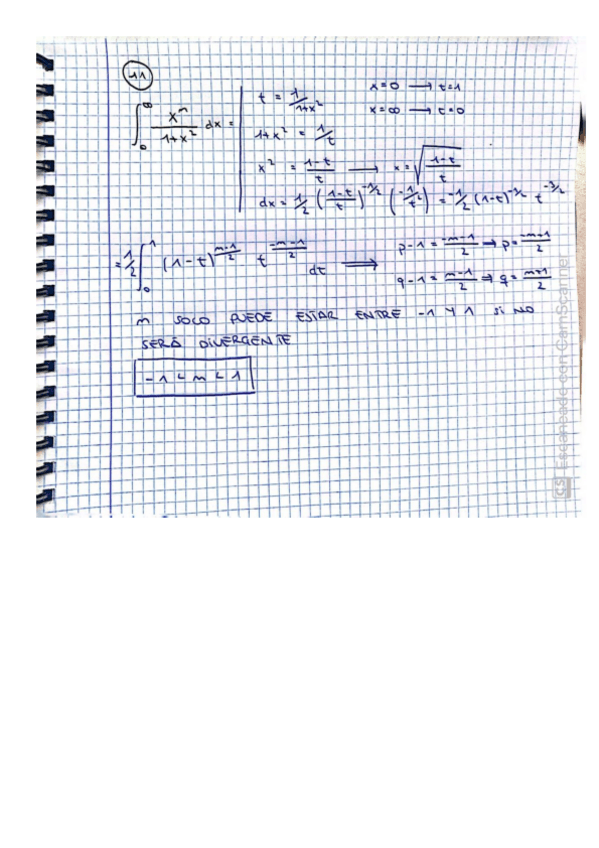 11
∫₀^∞ x^m/(1+x²) dx =
t = 1/(1+x²)    x=0 → t=1
x=∞ → t=0
1+x² = 1/t
x² = (1-t)/t → x = √((1-t)/t)
dx = 1/2 ((1-t)/t)^(-1/2) (-1/t²) = -1/2 (1-t)^(-1/2) t^(-3/2)
= 1/2 ∫₀¹ (1-t)^((m-1)/2) t^((-m-1)/2) dt ⟹ p-1 = (-m-1)/2 ⇒ p = (-m+1)/2
q-1 = (m-1)/2 ⇒ q = (m+1)/2
m SOLO PUEDE ESTAR ENTRE -1 Y 1 SI NO
SERÁ DIVERGENTE
-1 < m < 1
CS Escaneado con CamScanner